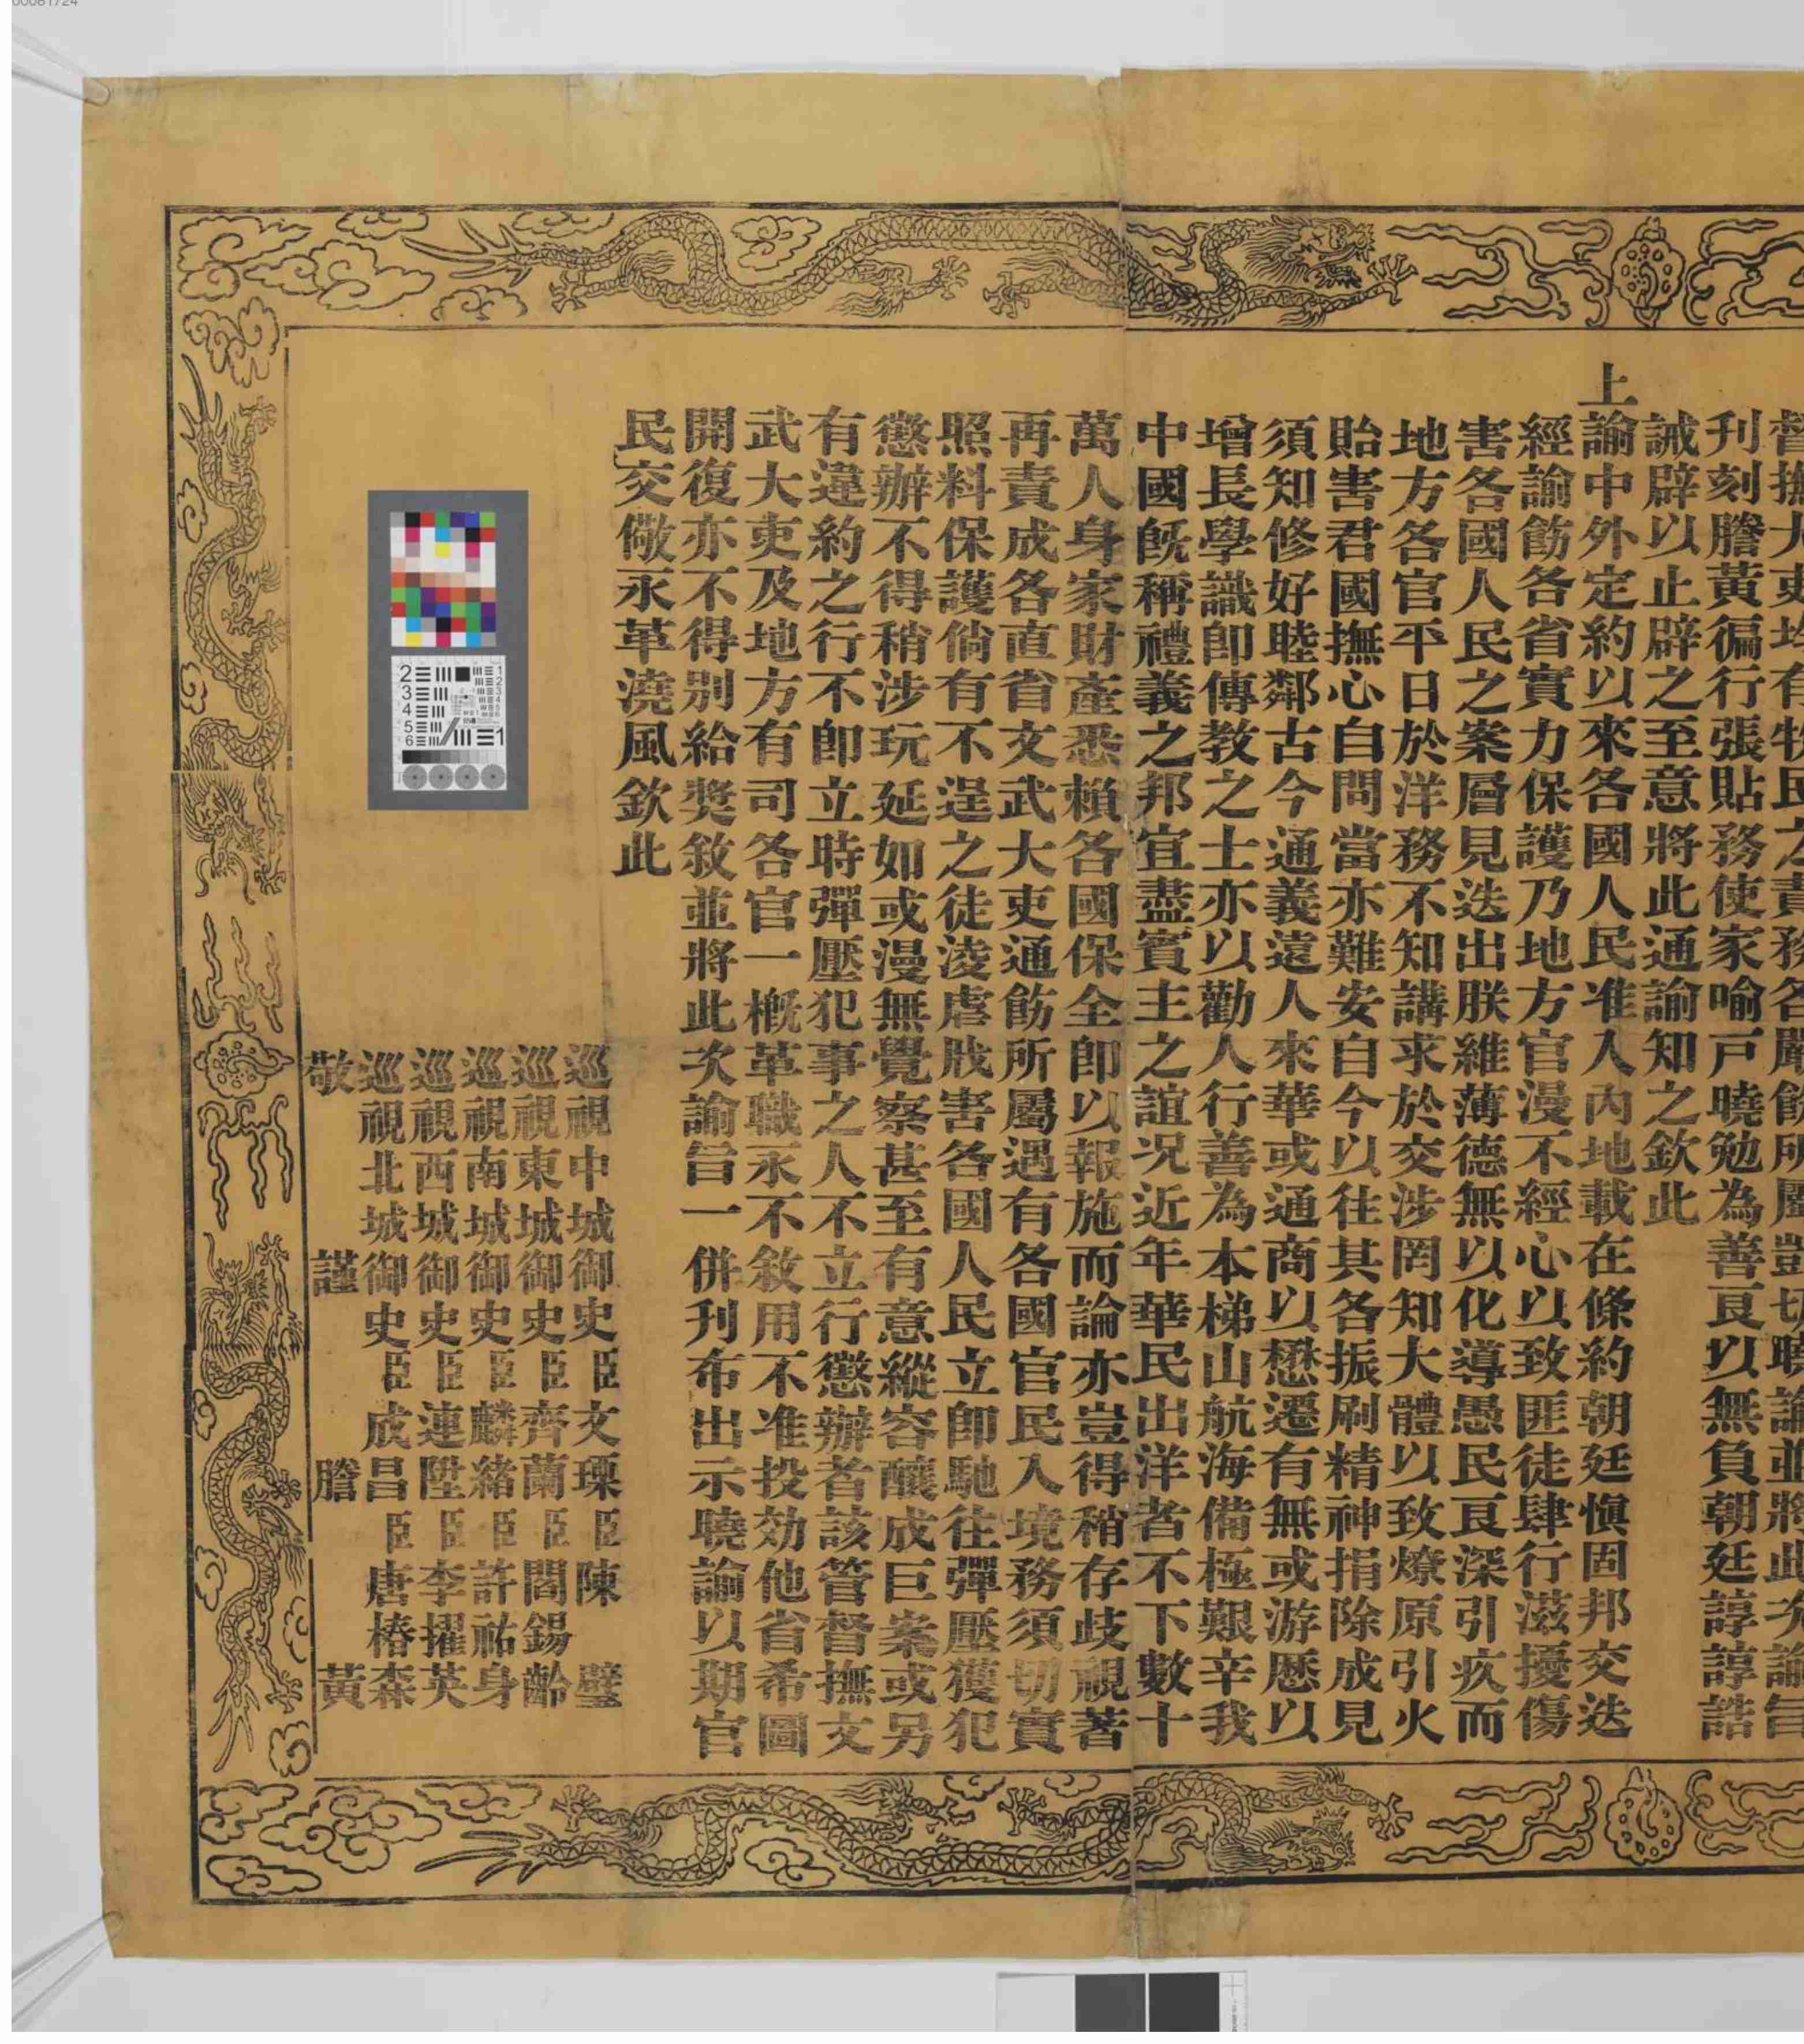 督撫大吏均有牧民之責務各嚴飭所屬豈切曉諭並將此次諭旨
刊刻謄黃徧行張貼務使家喻戶曉勉為善良以無負朝廷諄諄誥
誡辟以止辟之至意將此通諭知之欽此
上諭中外定約以來各國人民准入內地載在條約朝廷慎固邦交迭
經諭飭各省實力保護乃地方官漫不經心以致匪徒肆行滋擾傷
害各國人民之案層見迭出朕維薄德無以化導愚民良深引疚而
地方各官平日於洋務不知講求於交涉罔知大體以致燎原引火
貽害君國撫心自問當亦難安自今以往其各振刷精神捐除成見
須知修好睦鄰古今通義遠人來華或通商以懋遷有無或游歷以
增長學識即傳教之士亦以勸人行善為本梯山航海備極艱辛我
中國旣稱禮義之邦宜盡賓主之誼況近年華民出洋者不下數十
萬人身家財產悉賴各國保全即以報施而論亦豈得稍存歧視著
再責成各直省文武大吏通飭所屬遇有各國官民入境務須切實
照料保護倘有不逞之徒淩虐戕害各國人民立即馳往彈壓獲犯
懲辦不得稍涉玩延如或漫無覺察甚至有意縱容釀成巨案或另
有違約之行不即立時彈壓犯事之人不立行懲辦者該管督撫文
武大吏及地方有司各官一概革職永不敘用不准投効他省希圖
開復亦不得別給獎敘並將此次諭旨一併刊布出示曉諭以期官
民交儆永革澆風欽此
巡視中城御史臣文瑮臣陳璧
巡視東城御史臣齊蘭臣閻錫齡
巡視南城御史臣麟緒臣許祐身
巡視西城御史臣連陞臣李擢英
巡視北城御史臣成昌臣唐椿森
敬謹謄黃
00081724